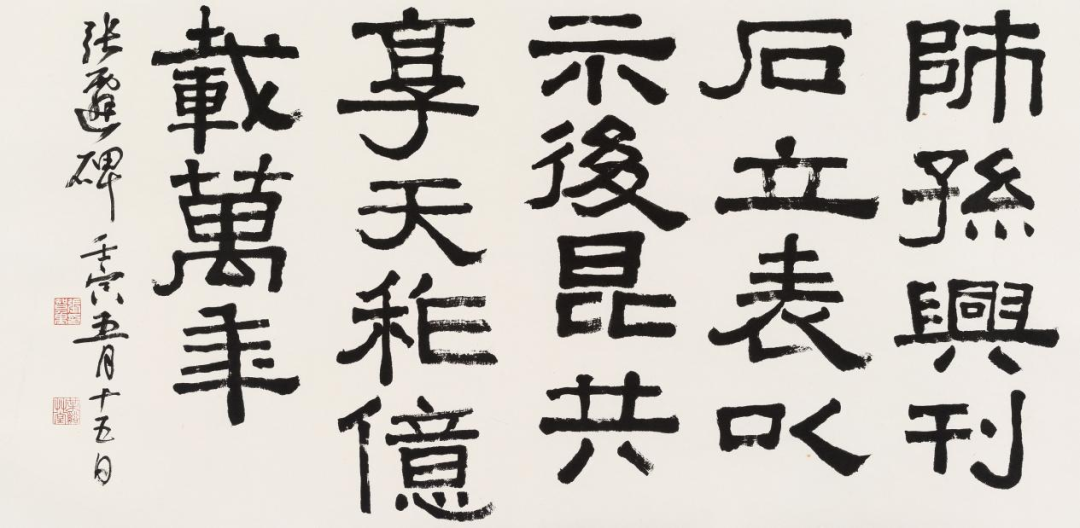 師孫興刊
石立表以
示後昆共
享天祚億
載萬年
張遷碑 壬寅五月十五日